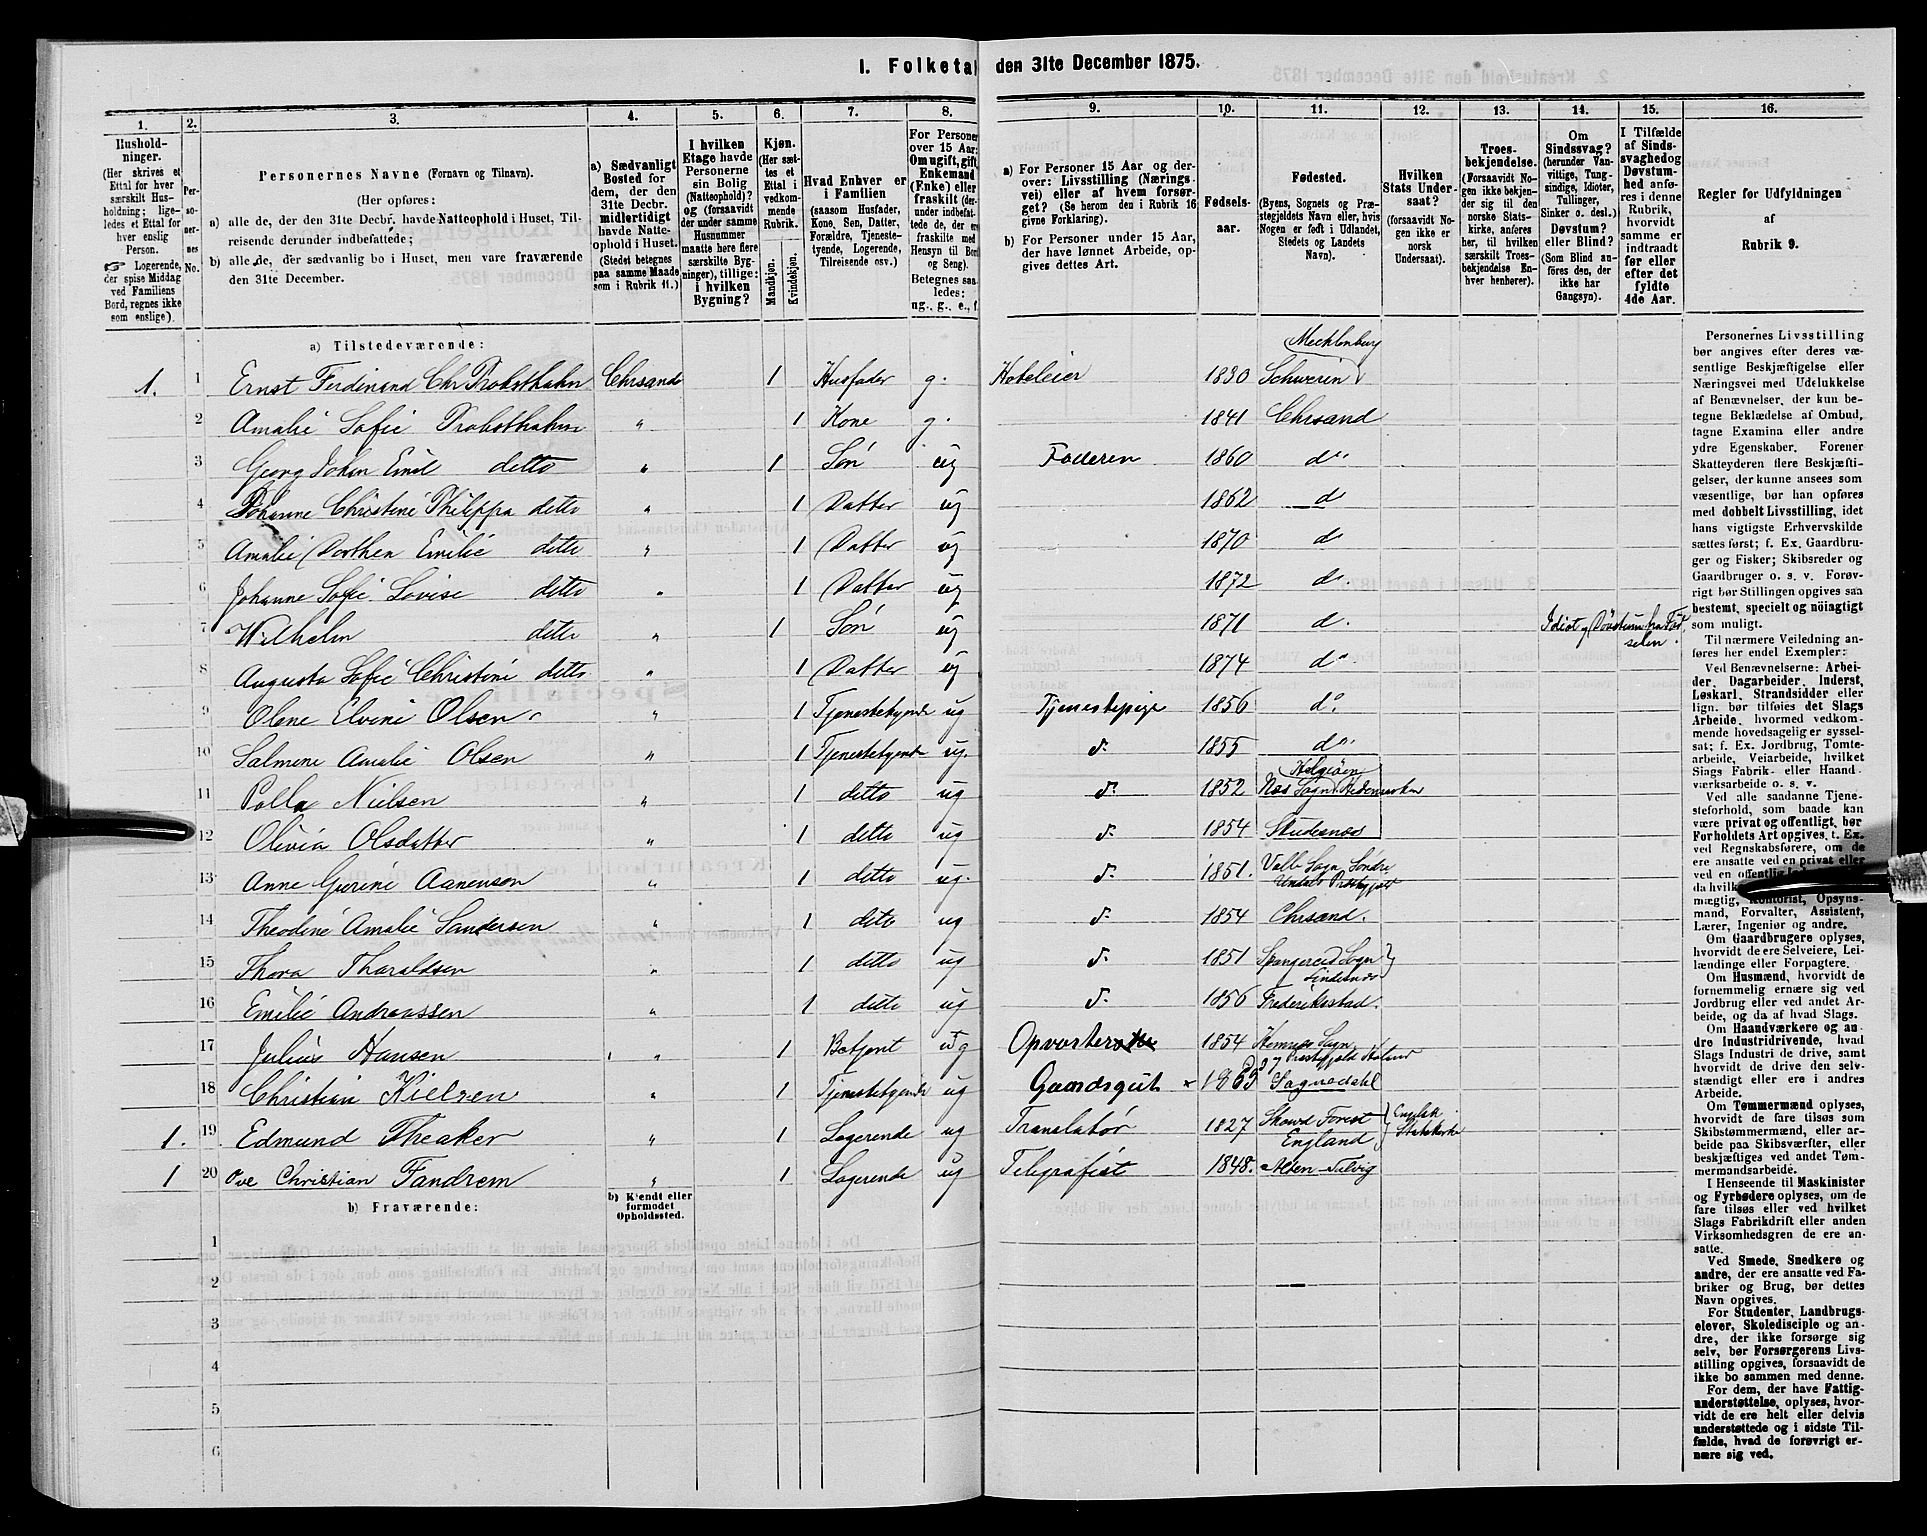 I. Folketal den 31te December 1875.
1. 2. 3. 4. 5. 6. 7. 8. 9. 10. 11. 12. 13. 14. 15. 16.
Hushold-
ninger.
(Her skrives et
Ettal for hver
særskilt Hus-
holdning; lige-
ledes et Ettal for
hver enslig
Person.
☞ Logerende,
der spise Middag
ved Familiens
Bord, regnes ikke
som enslige).
Per-
so-
ner-
nes
No.
Personernes Navne (Fornavn og Tilnavn).
(Her opføres:
a) alle de, der den 31te Decbr. havde Natteophold i Huset, Til-
reisende derunder indbefattede;
b) alle de, der sædvanlig bo i Huset, men vare fraværende
den 31te December.
a) Sædvanligt
Bosted for
dem, der den
31te Decbr.
midlertidigt
havde Natte-
ophold i Huset.
(Stedet betegnes
paa samme Maade
som i Rubrik 11.)
I hvilken
Etage havde
Personerne
sin Bolig
(Natteophold)?
og (forsaavidt
der under samme
Husnummer
maatte være flere
særskilte Byg-
ninger), tillige:
i hvilken
Bygning?
Kjøn.
(Her sæt-
tes et
Ettal i
vedkom-
mende
Rubrik.
Mandkjøn.
Kvindekjøn.
Hvad Enhver er
i Familien
(saasom Husfader,
Kone, Søn, Datter,
Forældre, Tjeneste-
tyende, Logerende,
Tilreisende osv.)
For Personer
over 15 Aar:
Om ugift, gift,
Enkemand
(Enke) eller
fraskilt (der-
under indbefat-
tede de, der ere
fraskilte med
Hensyn til Bord
og Seng).
Betegnes saa-
ledes:
ug., g., e., f.
a) For Personer 15 Aar og der-
over: Livsstilling (Nærings-
vei) eller af hvem forsør-
get? (Se herom den i Rubrik 16
givne Forklaring).
b) For Personer under 15 Aar,
der have lønnet Arbeide, op-
gives dettes Art.
Fødsels-
aar.
Fødested.
(Byens, Sognets og Præ-
stegjeldets Navn eller, hvis
Nogen er født i Udlandet,
Stedets og Landets
Navn).
Hvilken
Stats Under-
saat?
(forsaavidt No-
gen ikke er
norsk
Undersaat).
Troes-
bekjendelse.
(Forsaavidt No-
gen ikke bekjen-
der sig til den
norske Stats-
kirke, anføres
her, til hvilken
særskilt Troes-
bekjendelse En-
hver henhører).
Om
Sindssvag?
(herunder Van-
vittige, Tung-
sindige, Idioter,
Tullinger,
Sinker o. desl.)
Døvstum?
eller Blind?
(Som Blind an-
føres den, der
ikke har
Gangsyn).
I Tilfælde
af Sinds-
svaghed og
Døvstum-
hed anfø-
res i denne
Rubrik,
hvorvidt
samme er
indtraadt
før eller
efter det
fyldte
4de Aar.
Regler for Udfyldningen
af
Rubrik 9.
a) Tilstedeværende:
1. 1 Ernst Ferdinand Chr Probsthahn Chrsand 1 Husfader g. Hoteleier 1830 Mecklenburg Schwerin
2 Amalie Sofie Probsthahn " 1 Kone g. 1841 Chrsand
3 Georg Johan Emil ditto " 1 Søn ug Faderen 1860 do
4 Johanne Christine Philippa ditto " 1 Datter ug 1862 d
5 Amalie Dorthea Emilie ditto " 1 Datter ug 1870 d
6 Johanne Sofie Lovise ditto " 1 Datter ug 1872 d.
7 Wilhelm ditto " 1 Søn ug 1871 d. Idiot og Døvstum fra Fød-
selen.
8 Augusta Sofie Christine ditto " 1 Datter ug 1874 do
9 Olene Elvine Olsen " 1 Tjenestetyende ug Tjenestepige 1856 do
10 Salmine Amalie Olsen " 1 Tjenestetyende ug. d. 1855 do
11 Polla Nielsen " 1 ditto ug d. 1852 Helgøen Næs Sogn Hedemarken
12 Olivia Olsdatter " 1 ditto ug d. 1854 Skudesnæs
13 Anne Gurine Aanenson " 1 ditto ug. d. 1851. Valle Sogn, Søndre
Undals Præstegjæld
14 Theodine Amalie Sandersen " 1 ditto ug d. 1854 Chrsand.
15 Thora Tharaldsen " 1 ditto ug d. 1851 Spangereid Sogn
Lindesnæs
16 Emilie Andreassen " 1 ditto ug d. 1856 Frederiksstad.
17 Julius Hansen " 1 Betjent ug Opvarter 1854 Sogn
og Præstegjeld
18 Christian Kielsen " 1 Tjenestetyende ug Gaardsgut 1865 Søgnedahl
1. 19 Edmund Theaker " 1 Logerende ug Translatør 1827 Forest
England Engelsk
1 20 Ove Christian Fandrem " 1 Logerende ug Telegrafist 1848. Alten-Talvig
b) Fraværende:
b) Kjendt eller
formodet
Opholdssted.
1
2
3
4
5
6
Personernes Livsstilling
bør angives efter deres væ-
sentlige Beskjæftigelse eller
Næringsvei med Udelukkelse
af Benævnelser, der kun be-
tegne Beklædelse af Ombud,
tagne Examina eller andre
ydre Egenskaber. Forener
Skatteyderen flere Beskjæfti-
gelser, der kunne ansees som
væsentlige, bør han opføres
med dobbelt Livsstilling, idet
hans vigtigste Erhvervskilde
sættes først; f. Ex. Gaardbru-
ger og Fisker; Skibsreder og
Gaardbruger o. s. v. Forøv-
rigt bør Stillingen opgives saa
bestemt, specielt og nöiagtigt
som muligt.
Til nærmere Veiledning an-
føres her endel Exempler:
Ved Benævnelserne: Arbei-
der, Dagarbeider, Inderst,
Løskarl, Strandsidder eller
lign. bør tilføies det Slags
Arbeide, hvormed vedkom-
mende hovedsagelig er syssel-
sat; f. Ex. Jordbrug, Tomte-
arbeide, Veiarbeide, hvilket
Slags Fabrik- eller Haand-
værksarbeide o. s. v.
Ved alle saadanne Tjene-
steforhold, som baade kan
være privat og offentligt, bør
Forholdets Art opgives, t. Ex.
ved Regnskabsførere, om de
ere ansatte ved en privat eller
ved en offentlig
da hvilk
mægtig, Kontorist, Opsyns-
mand, Forvalter, Assistent,
Lærer, Ingeniør og andre.
Om Gaardbrugere oplyses,
hvorvidt de ere Selveiere, Lei-
lændinge eller Forpagtere.
Om Husmænd, hvorvidt de
fornemmelig ernære sig ved
Jordbrug eller ved andet Ar-
beide, og da af hvad Slags.
Om Haandværkere og an-
dre Industridrivende, hvad
Slags Industri de drive, samt
hvorvidt de drive den selv-
stændigt eller ere i andres
Arbeide.
Om Tømmermænd oplyses,
hvorvidt de fare tilsøs som
Skibstømmermænd, eller ar-
beide paa Skibsværfter, eller
beskjæftiges ved andet Tøm-
mermandsarbeide.
I Henseende til Maskinister
og Fyrbødere oplyses, om de
fare tilsøs eller ved hvilket
Slags Fabrikdrift eller anden
Virksomhedsgren de ere an-
satte.
Ved Smede, Snedkere og
andre, der ere ansatte ved Fa-
briker og Brug, bør dettes
Navn opgives.
For Studenter, Landbrugs-
elever, Skoledisciple og an-
dre, der ikke forsørge sig
selv, bør Forsørgerens Livs-
stilling opgives, forsaavidt de
ikke bo sammen med denne.
For dem, der have Fattig-
understøttelse, oplyses, hvor-
vidt de ere helt eller delvis
understøttede og i sidste Til-
fælde, hvad de forøvrigt er-
nære sig ved.